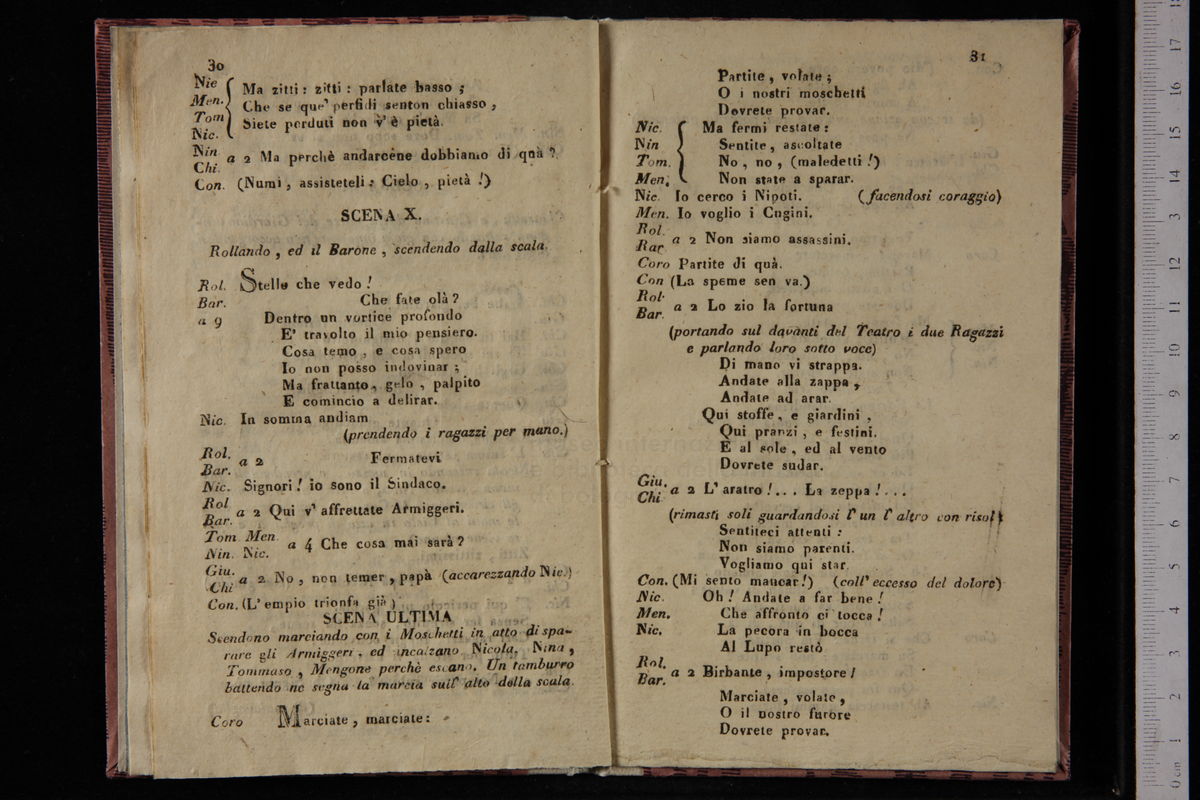 30
Nie Ma zitti : zitti : parlate basso ;
Men. Che se que' perfidi senton chiasso ,
Tom Siete perduti non v' è pietà.
Nic.
Nin a 2 Ma perchè andarcene dobbiamo di quà ?
Chi.
Con. (Numi , assisteteli : Cielo , pietà !)
SCENA X.
Rollando , ed il Barone , scendendo dalla scala.
Rol. Stelle che vedo !
Bar. Che fate olà ?
a 9 Dentro un vortice profondo
E' travolto il mio pensiero.
Cosa temo , e cosa spero
Io non posso indovinar ;
Ma frattanto , gelo , palpito
E comincio a delirar.
Nic. In somma andiam
(prendendo i ragazzi per mano.)
Rol. a 2 Fermatevi
Bar.
Nic. Signori ! io sono il Sindaco.
Rol a 2 Qui v' affrettate Armiggeri.
Bar.
Tom Men. a 4 Che cosa mai sarà ?
Nin. Nic.
Giu. a 2 No , non temer , papà (accarezzando Nic.)
Chi
Con. (L' empio trionfa già )
SCENA ULTIMA
Scendono marciando con i Moschetti in atto di spa-
rare gli Armiggeri , ed incalzano Nicola, Nina ,
Tommaso , Mengone perchè escano. Un tamburro
battendo ne segna la marcia sull' alto della scala.
Coro Marciate , marciate :
31
Partite , volate ;
O i nostri moschetti
Dovrete provar.
Nic. Ma fermi restate :
Nin Sentite , ascoltate
Tom. No , no , (maledetti !)
Men. Non state a sparar.
Nic. Io cerco i Nipoti. (facendosi coraggio)
Men. Io voglio i Cugini.
Rol. a 2 Non siamo assassini.
Rar
Coro Partite di quà.
Con (La speme sen va.)
Rol. a 2 Lo zio la fortuna
Bar.
(portando sul davanti del Teatro i due Ragazzi
e parlando loro sotto voce)
Di mano vi strappa.
Andate alla zappa ,
Andate ad arar.
Qui stoffe , e giardini ,
Qui pranzi , e festini.
E al sole , ed al vento
Dovrete sudar.
Giu. a 2 L' aratro ! . . . La zeppa ! . . .
Chi
(rimasti soli guardandosi l' un l' altro con riso)
Sentiteci attenti :
Non siamo parenti.
Vogliamo qui star.
Con. (Mi sento mancar!) (coll' eccesso del dolore)
Nic. Oh ! Andate a far bene !
Men. Che affronto ci tocca !
Nic. La pecora in bocca
Al Lupo restò
Rol. a 2 Birbante , impostore !
Bar.
Marciate , volate ,
O il nostro furore
Dovrete provar.